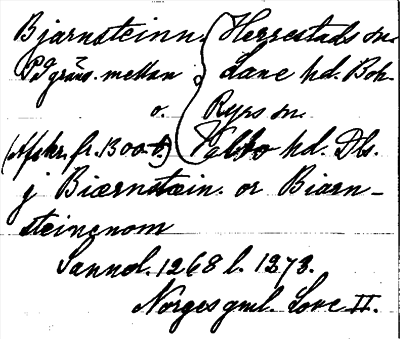 Bjarnsteinn. Herrestads sn.
På gräns. mellan Lane hd. Boh.
o. Ryrs sn.
(Afskr. fr. 1300-t.) Valbo hd. Dls.
j Biærnstæin. or Biærn-
steinenom
Sannol. 1268 l. 1273.
Norges gml. Love II.